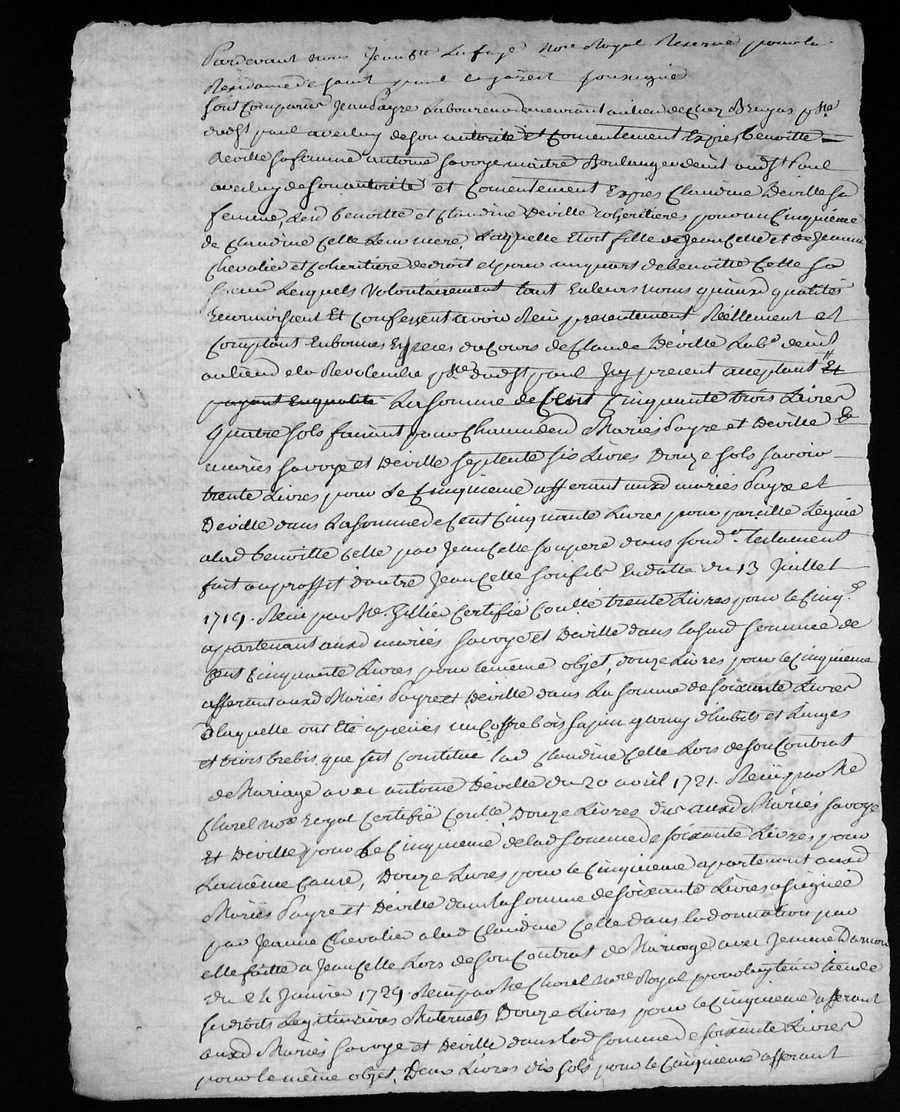 Pardevant nous Jean Bte Lafaye Nore Royal Reservé pour la
Residance de saint paul en jarest soussigné
sont comparus Jean Payre Laboureur demeurant au lieu de chez Breyas psse
dudt st paul avec luy de son autorité et Consentement Exprès Benoitte
Deville sa femme antoine Savoye maitre Boulanger demt audt st Paul
avec luy de son autorité et Consentement Exprès Claudine Deville sa
femme, Lesd benoitte et Claudine Deville coheritieres pour un Cinquieme
de Claudine Celle Leur mere Laquelle Etoit fille de Jean Celle et de Jeanne
Chevalier et coheritiere de droit et pour un quart de benoitte Celle sa
soeur Lesquels Volontairement tant En leurs noms qu'auxd qualités
Reconnoissent Et Confessent avoir Reçu presentement Réellement et
Comptant En bonnes Especes du Cours de Claude Deville Labr demt
au lieu de la psse dudt st paul Icy present acceptant Et
payant En qualité La somme de Cent Cinquante trois Livres
Quatre sols faisant pour Chaun desd Mariés Payre et Deville Et
mariés Savoye et Deville septente six Livres Douze sols savoir
trente Livres pour Le Cinquieme afferant auxd mariés Payre et
Deville dans La somme de Cent Cinquante Livres pour pareille Leguée
a lad benoitte Celle par Jean Celle son pere dans son der testament
fait au proffit d'autre Jean Celle son fils En datte du 13 Juillet
1719. Reçu par Me Zillier Certifié Conllé trente Livres pour le Cinqe
apartenant auxd mariés Savoye et Deville dans lasusd somme de
Cent Cinquante Livres pour le meme objet, douze Livres pour le Cinquieme
afferant auxd Mariés Payre et Deville dans La somme de soixante Livres
a laquelle ont été apreciés un Coffre bois sapin garny d'habits et Linges
et trois brebis que s'est Constitué lad Claudine Celle Lors de son Contrat
de Mariage avec antoine Deville du 20 avril 1721. Reçu par Me
Chorel nore royal Certifié Conllé Douze Livres dûs auxd Mariés Savoye
Et Deville pour Le Cinquieme de lad somme de soixante Livres pour
La meme Cause, Douze Livres pour le Cinquieme apartenant auxd
Mariés Payre et Deville dans la somme de soixante Livres assignée
par Jeanne Chevalier a lad Claudine Celle dans la donnation par
elle faitte a Jean Celle Lors de son Contrat de Mariage avec Jeanne Darnon
du 24 Janvier 1729. Reçu par Me Chorel Nore Royal pour luy tenir lieu de
ses droits Legitimaires Maternels Douze Livres pour le Cinquieme afferant
auxd Mariés Savoye et Deville dans lad somme de soixante Livres
pour le même objet, Deux Livres dix sols pour le Cinquieme afferant